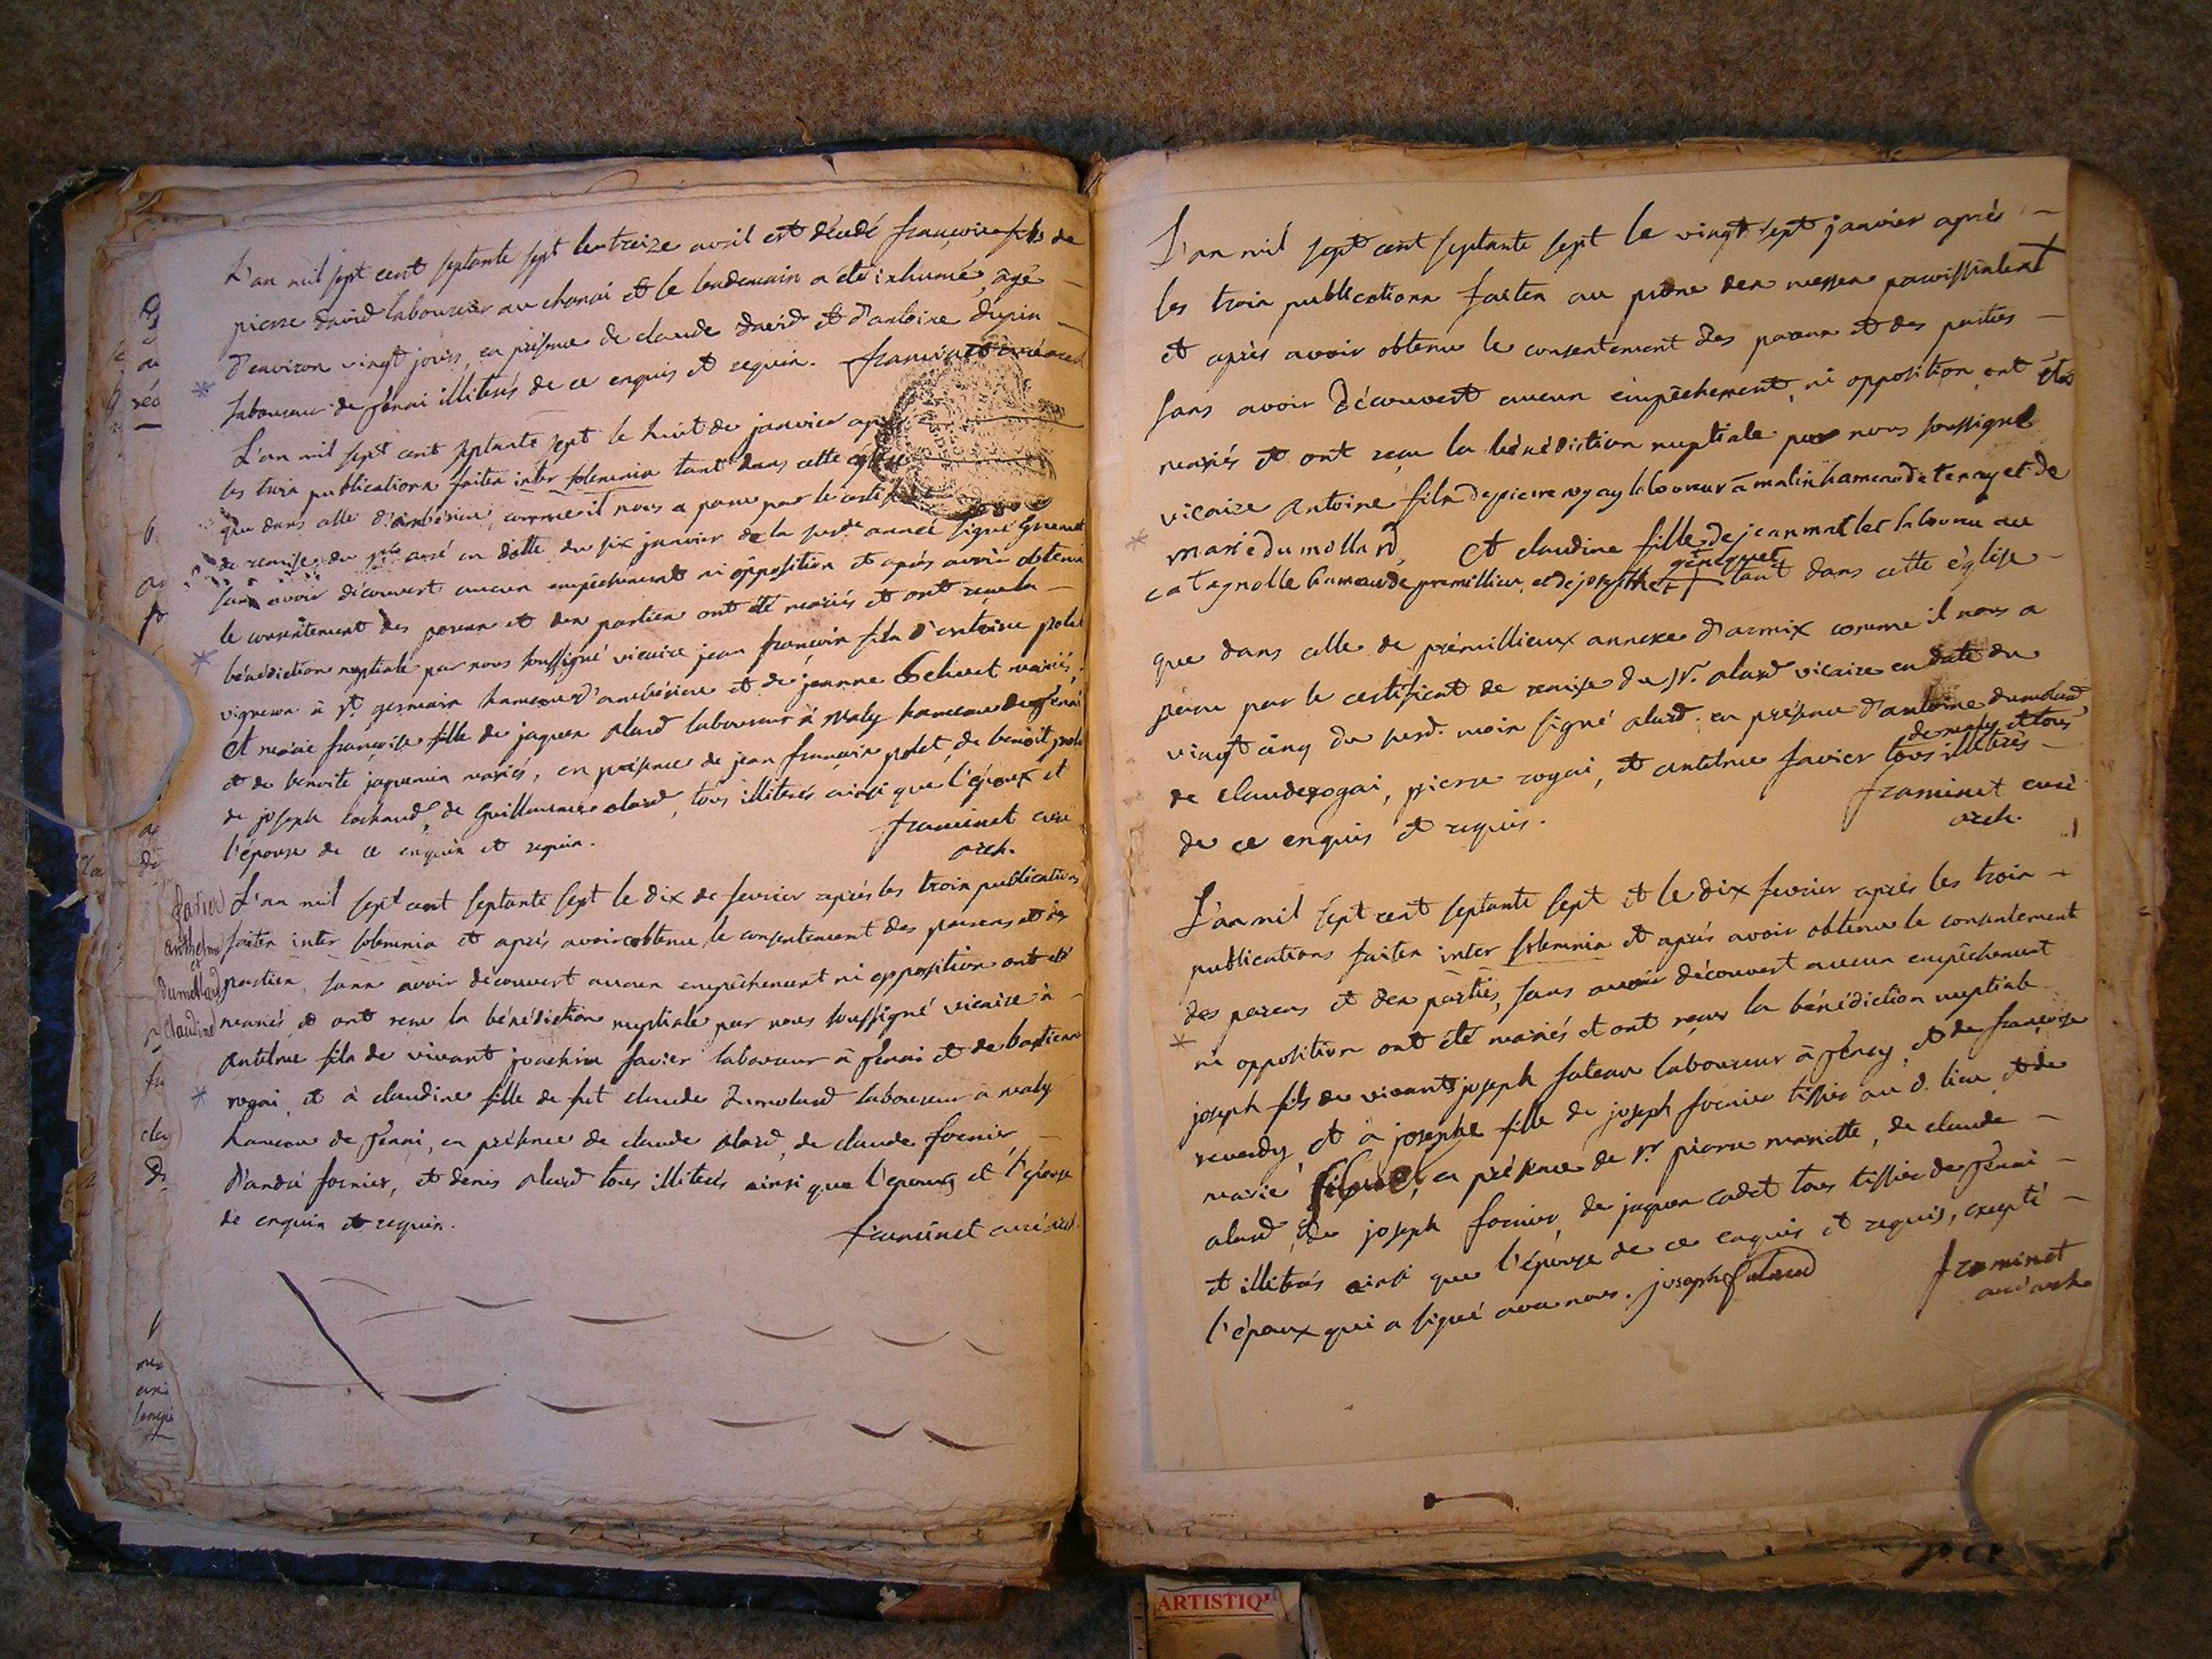 L'an mil sept cent septante sept le treize avril est décédé françois fils de
pierre david laboureur au chanai et le lendemain a été inhumé, agé
d'environ vingt jours, en présence de claude david et d'antoine dupin
laboureur de ténai illiterés de ce enquis et requis.
L'an mil sept cent septante sept le huit de janvier après
les trois publications faites inter solemnia tant dans cette église
que dans celle d'ambérieu, comme il nous a paru par le certificat
de remise du curé en datte du six janvier de la année signé
sans avoir découvert aucun empêchement ni opposition et après avoir obtenu
le consentement des parens et des parties ont été mariés et ont reçu la
bénédiction nuptiale par nous soussigné vicaire jean françois fils d'antoine polet
vigneron à st germain hameau d'ambérieu et de jeanne mariés,
et marie françoise fille de jaques alard laboureur à maly hameau de ténai
et de benoite jaquemin mariés, en présence de jean françois polet, de benoit polet
de joseph cochaud, de guillaume alard, tous illiterés ainsi que l'époux et
l'épouse de ce enquis et requis. framinet curé
arch.
favier
anthelme
et
dumollard
claudine
L'an mil sept cent septante sept le dix de fevrier après les trois publications
faites inter solemnia et après avoir obtenu le consentement des parens et des
parties, sans avoir découvert aucun empêchement ni opposition ont été
mariés et ont recu la bénédiction nuptiale par nous soussigné vicaire à
antelme fils de vivant joachim favier laboureur à ténai et de bastienne
rogai, et à claudine fille de fut claude dumolard laboureur à maly
hameau de ténai, en présence de claude alard, de claude fornier,
d'andré fornier, et denis alard tous illiterés ainsi que l'epoux et l'épouse
de enquis et requis. framinet curé arch.
L'an mil sept cent septante sept le vingt sept janvier après
les trois publications faites au prône des messes paroissiales
et après avoir obtenu le consentement des parens et des parties
sans avoir découvert aucun empêchement, ni opposition ont étés
mariés et ont reçu la bénédiction nuptiale par nous soussigné
vicaire antoine fils de pierre rogay laboureur à malis hameau de tenay et de
marie du mollard, et claudine fille de jean mallet laboureur au
génequet
catagnolle hameau de premillieu, et de josephte + tant dans cette église
que dans celle de prémillieux annexe d'armix comme il nous a
paru par le certificat de remise du sr. alard vicaire en date du
vingt cinq du mois signé alard; en présence d'antoine dumolard
de maly et tous
de claude rogai, pierre rogai, et antelme favier tous illiterés
de ce enquis et requis. framinet curé
arch.
L'an mil sept cent septante sept et le dix fevrier après les trois
publications faites inter solemnia et après avoir obtenu le consentement
des parens et des parties, sans avoir découvert aucun empêchement
ni opposition ont été mariés et ont reçu la bénédiction nuptiale
joseph fils de vivants joseph laboureur à ténay, et de françoise
reverdy, et à josephe fille de joseph fornier tissier au d. lieu et de
marie en présence de sr pierre mariette, de claude
alard, de joseph fornier, de jaques cadet tous tissiers de ténai
et illiterés ainsi que l'épouse de ce enquis et requis, excepté
l'époux qui a signé avec nous. joseph framinet
curé arch
ARTISTIQ